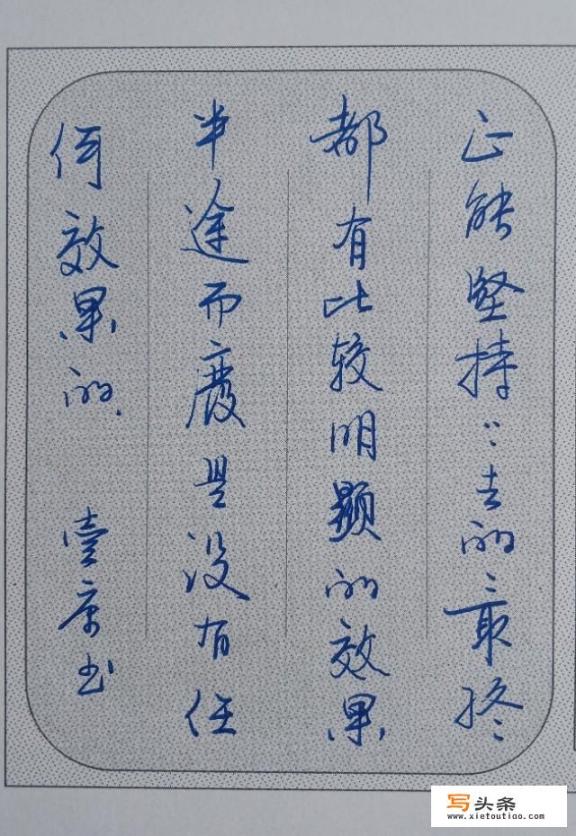 能坚持下去的最终
都有比较明显的效果
半途而废是没有任
何效果的 书
写头条
www.xietoutiao.com